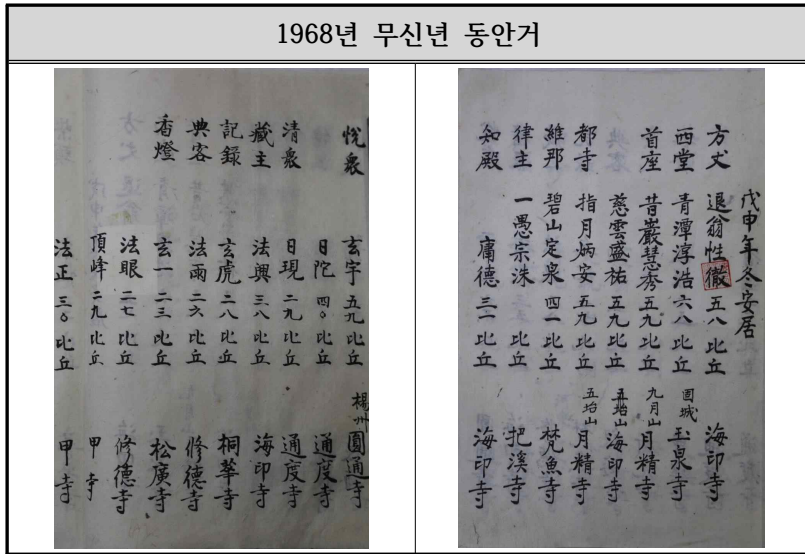 1968년 무신년 동안거
戊申年冬安居
方丈 退翁性徹 五八 比丘 海印寺
西堂 青潭淳浩 六八 比丘 固城 玉泉寺
首座 昔巖慧秀 五九 比丘 九月山 月精寺
慈雲盛祐 五九 比丘 海印寺
都寺 指月炳安 五九 比丘 五坮山 月精寺
維那 碧山定泉 四一 比丘 梵魚寺
律主 一愚宗洙 比丘 把溪寺
知殿 庸德 三一 比丘 海印寺
悅衆 玄宇 五九 比丘 楊州 圓通寺
日陀 四〇 比丘 通度寺
清衆 日現 二九 比丘 通度寺
藏主 法興 三八 比丘 海印寺
記錄 玄虎 二八 比丘 桐華寺
典客 法雨 二六 比丘 修德寺
香燈 玄一 二三 比丘 松廣寺
法眼 二七 比丘 修德寺
頂峰 二九 比丘 甲寺
法正 三〇 比丘 甲寺